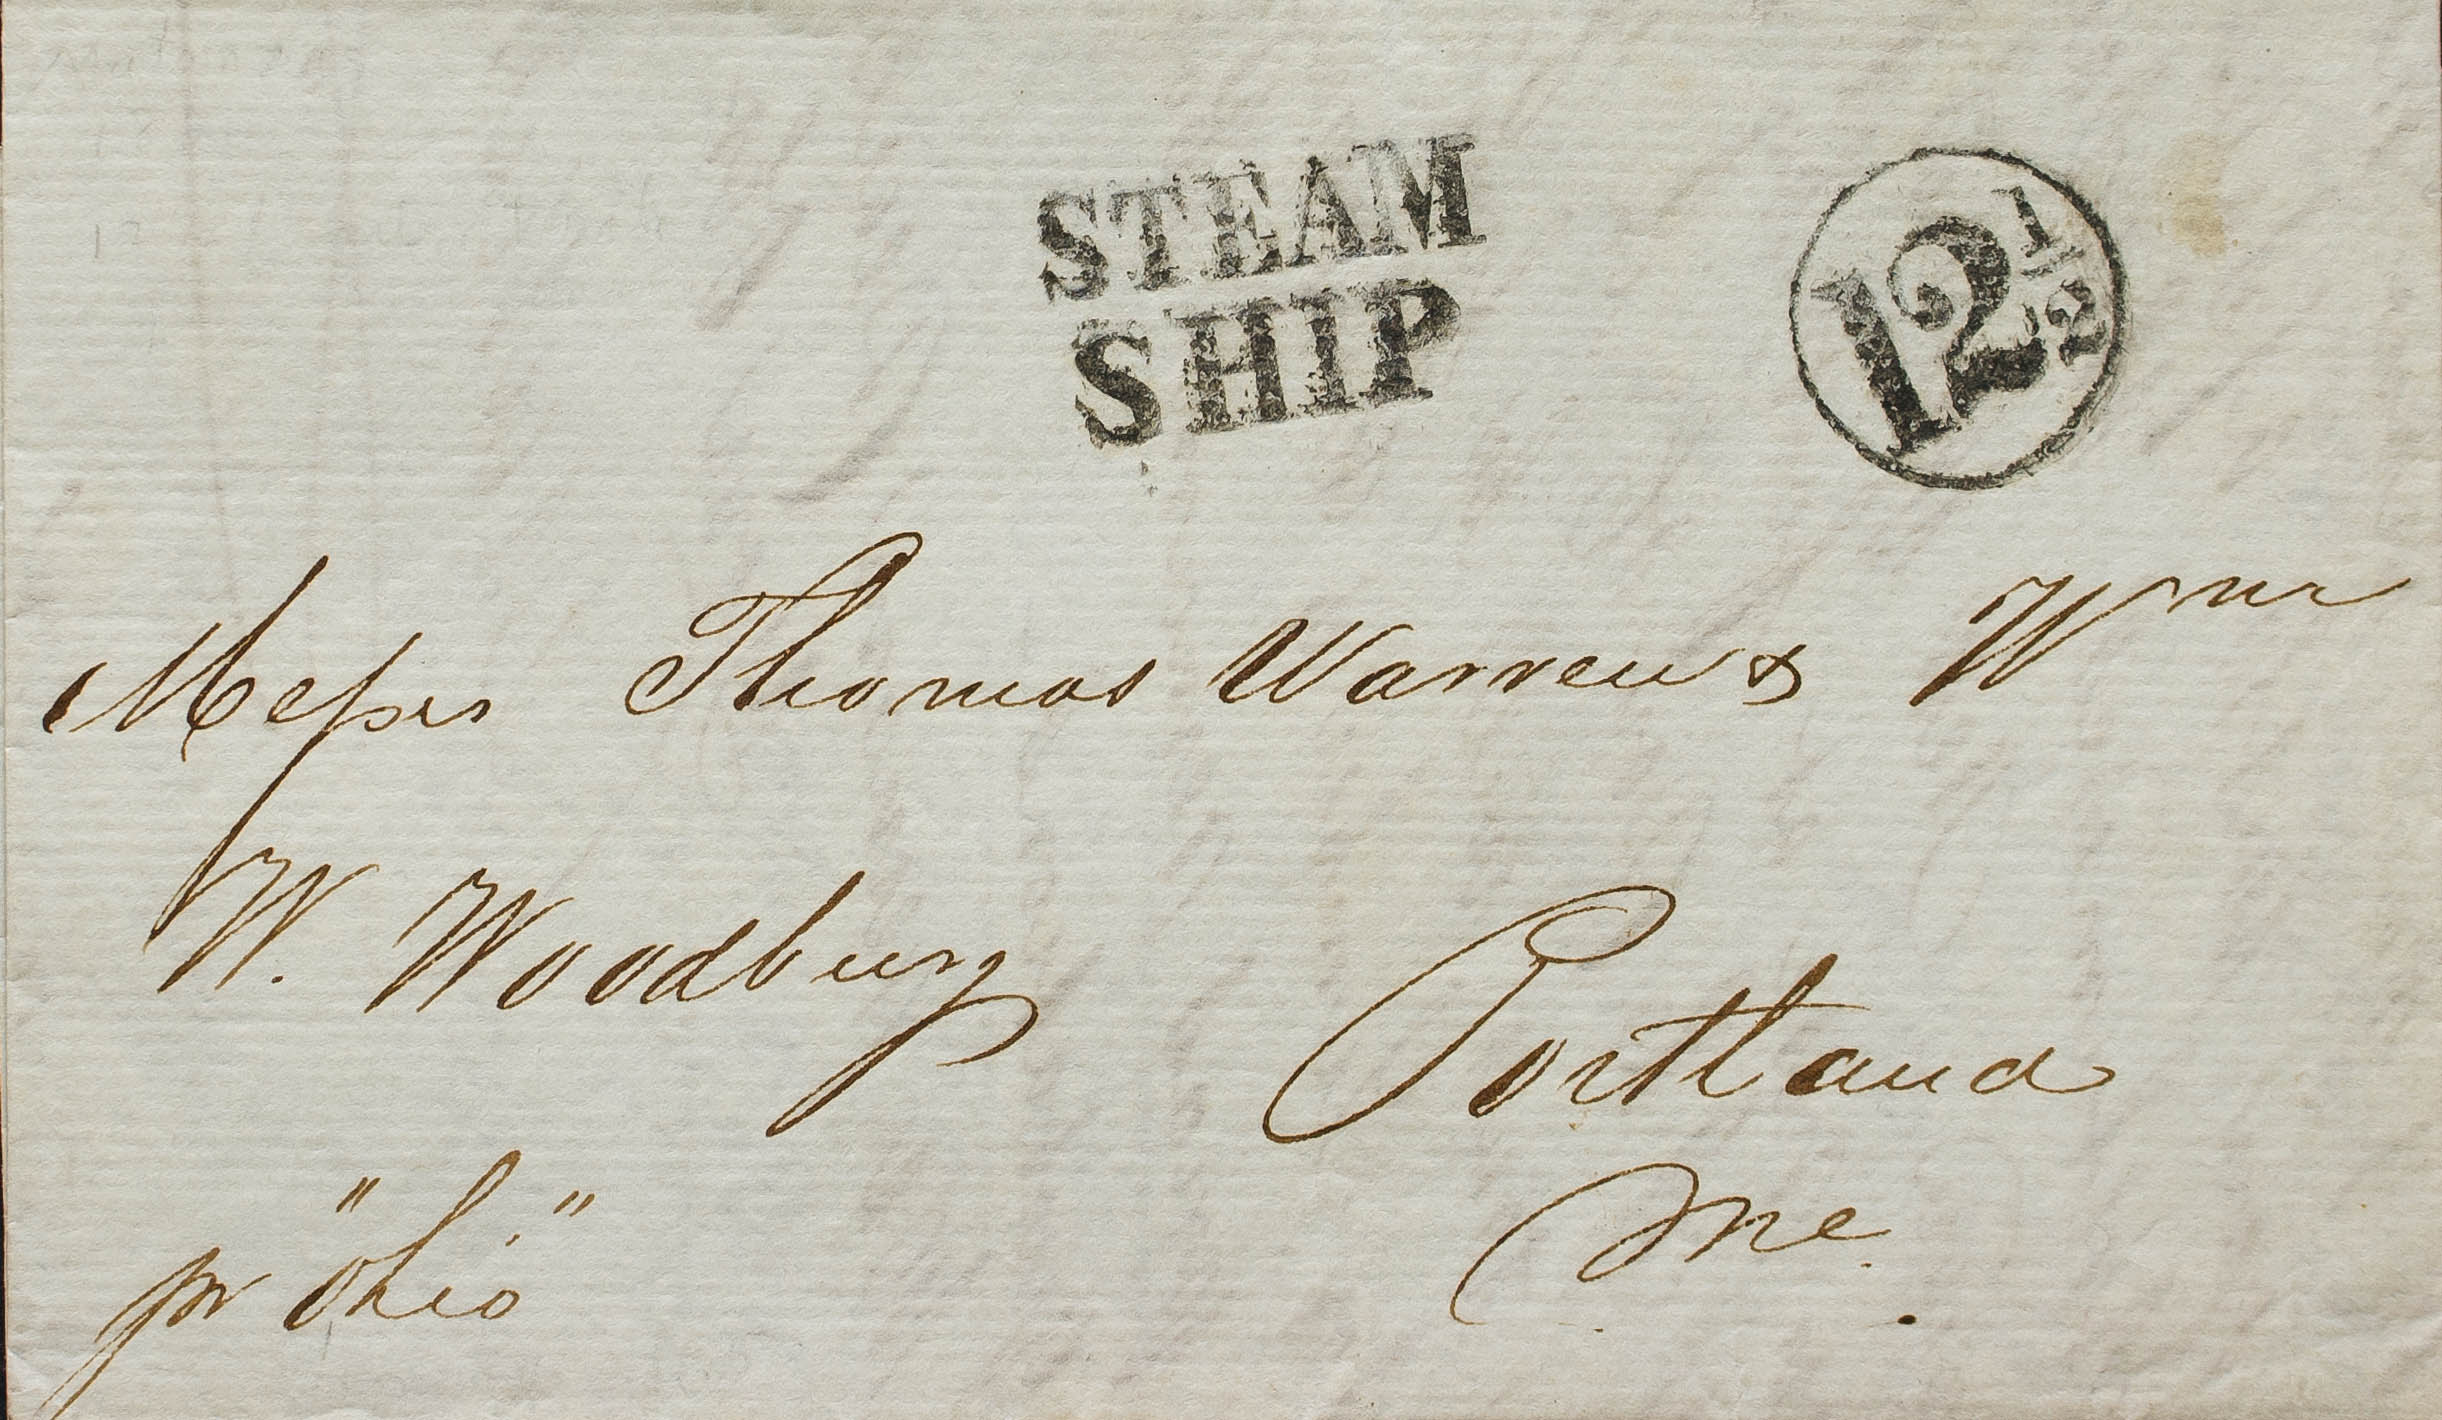 STEAM
SHIP
12 1/2
Messrs Thomas Warren & Wm
W. Woodbury
Portland
Me.
pr "Ohio"